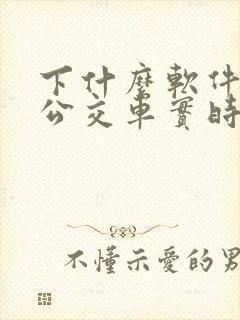 下什麼軟件
公交車實時
不懂示愛的男